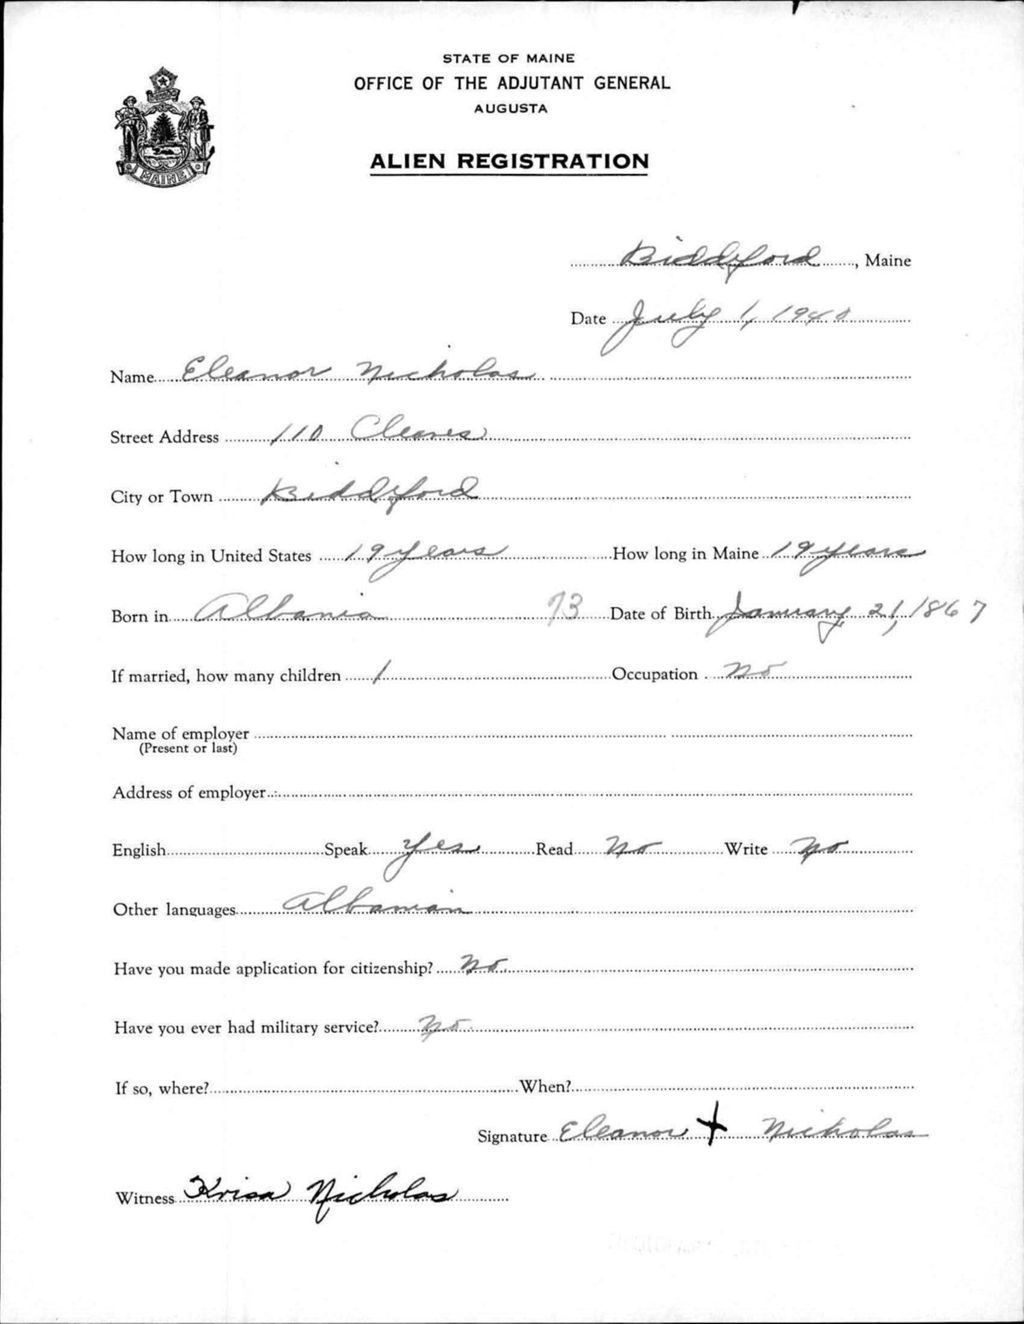 STATE OF MAINE
OFFICE OF THE ADJUTANT GENERAL
AUGUSTA
MAINE
ALIEN REGISTRATION
Biddeford, Maine
Date July 1, 1940
Name Eleanor Nicholas
Street Address 110 Cleaves
City or Town Biddeford
How long in United States 19 years How long in Maine 19 years
Born in Albania 73 Date of Birth January 21, 1867
If married, how many children 1 Occupation No
Name of employer
(Present or last)
Address of employer
English Speak Yes Read No Write No
Other languages Albanian
Have you made application for citizenship? No
Have you ever had military service? No
If so, where? When?
Signature Eleanor X Nicholas
Witness Krisa Nicholas